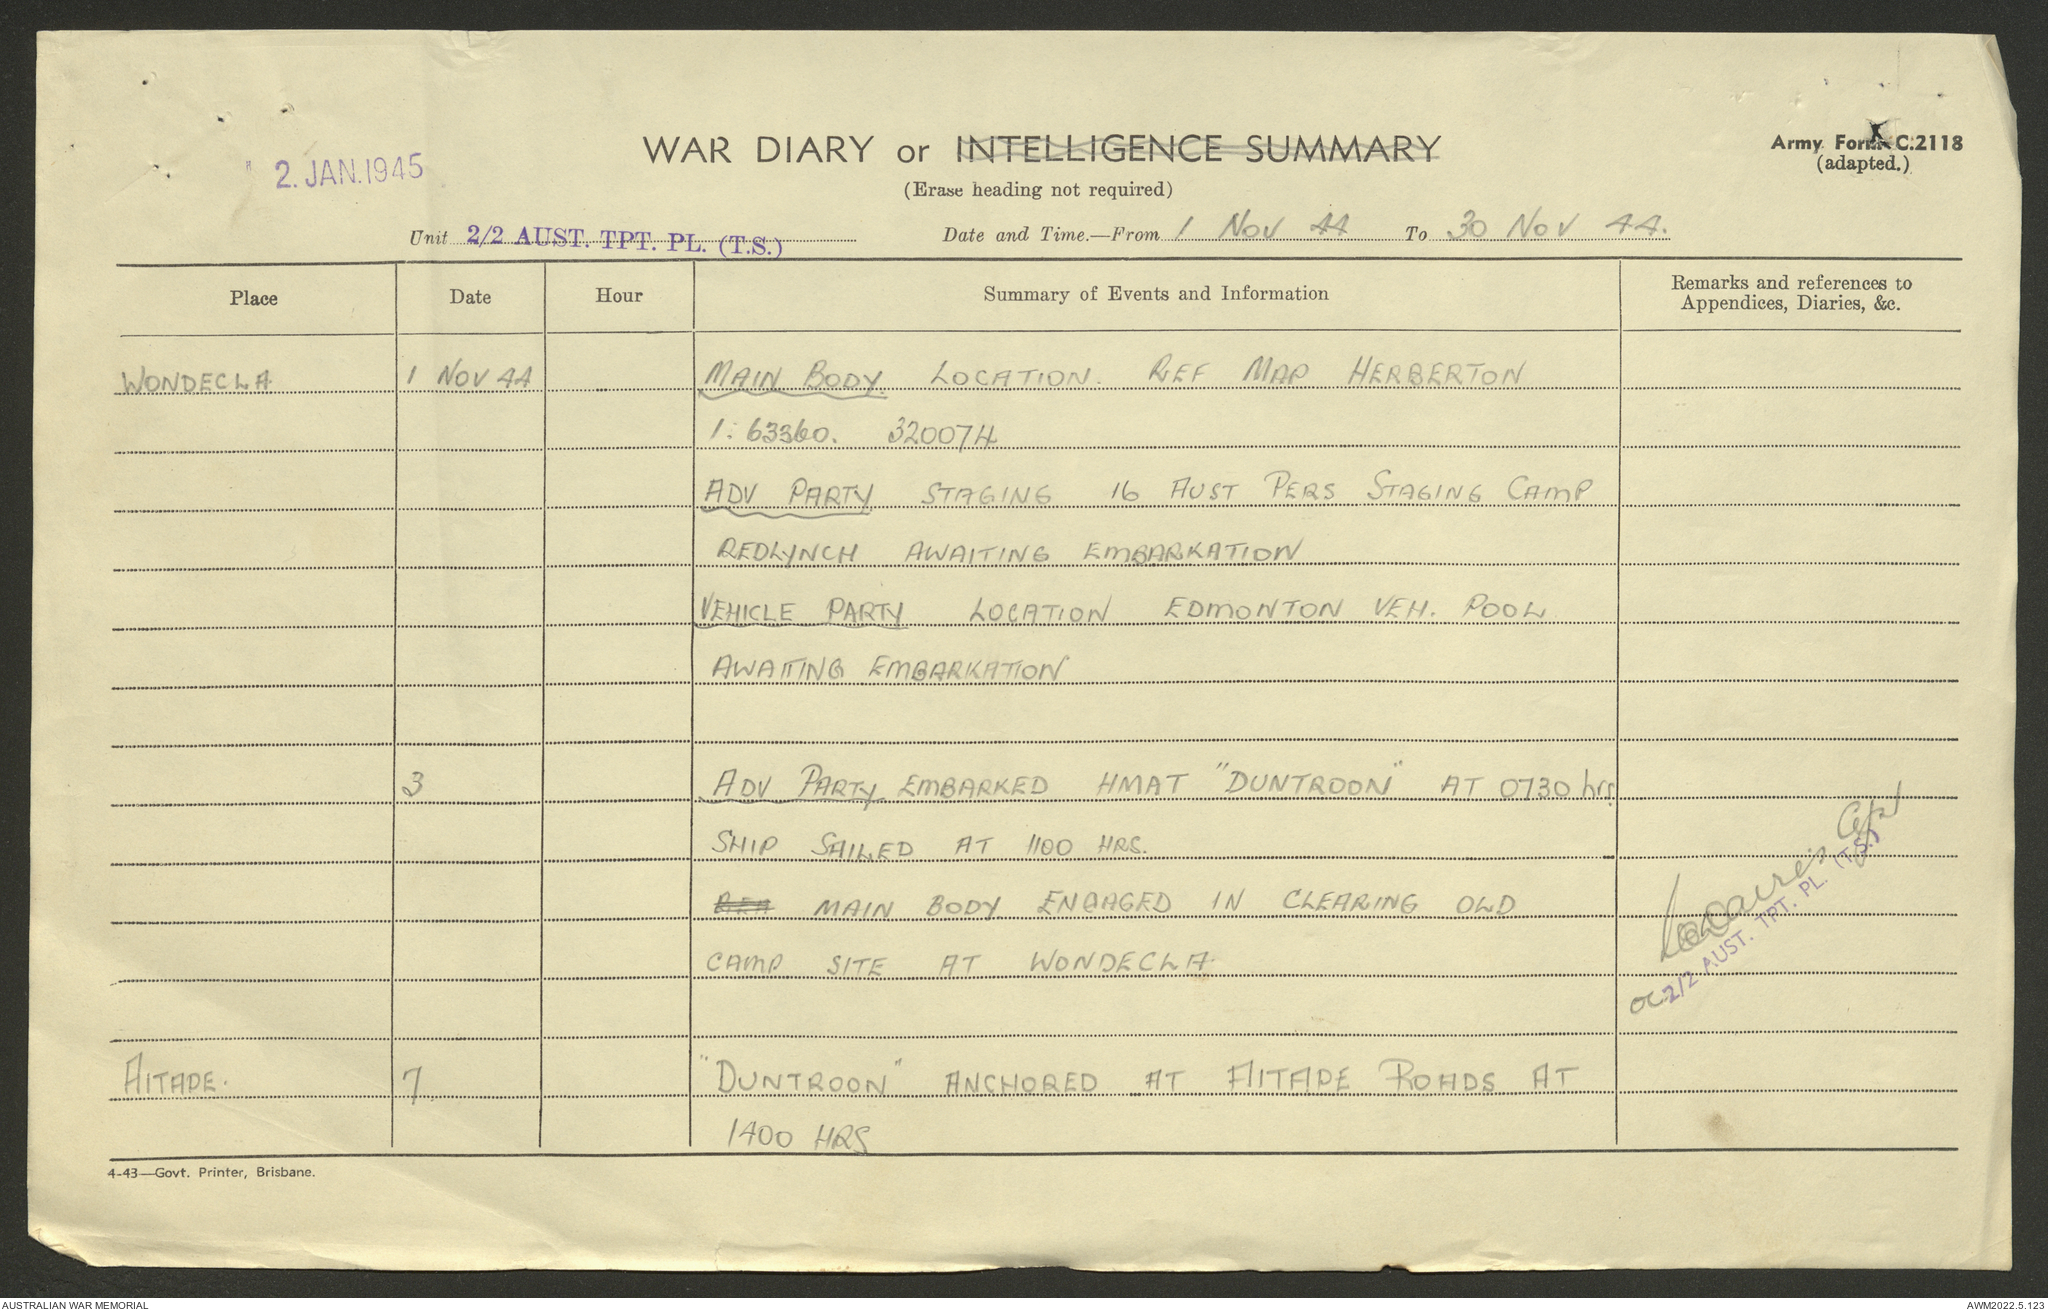 2. JAN. 1945
WAR DIARY or INTELLIGENCE SUMMARY
(Erase heading not required)
Army Form C.2118
(adapted.)
Unit 2/2 AUST. TPT. PL. (T.S.) Date and Time.—From 1 Nov 44 To 30 Nov 44.
Place Date Hour Summary of Events and Information Remarks and references to
Appendices, Diaries, &c.
WONDECLA 1 NOV 44 MAIN BODY LOCATION. REF MAP HERBERTON
1:63360. 320074
ADV PARTY STAGING 16 AUST PERS STAGING CAMP
REDLYNCH AWAITING EMBARKATION
VEHICLE PARTY LOCATION EDMONTON VEH. POOL
AWAITING EMBARKATION
3 ADV PARTY EMBARKED HMAT "DUNTROON" AT 0730 hrs
SHIP SAILED AT 1100 HRS.
MAIN BODY ENGAGED IN CLEARING OLD
CAMP SITE AT WONDECLA
Capt
OC 2/2 AUST. TPT. PL. (T.S.)
AITAPE. 7 "DUNTROON" ANCHORED AT AITAPE ROADS AT
1400 HRS
4-43—Govt. Printer, Brisbane.
AUSTRALIAN WAR MEMORIAL
AWM2022.5.123